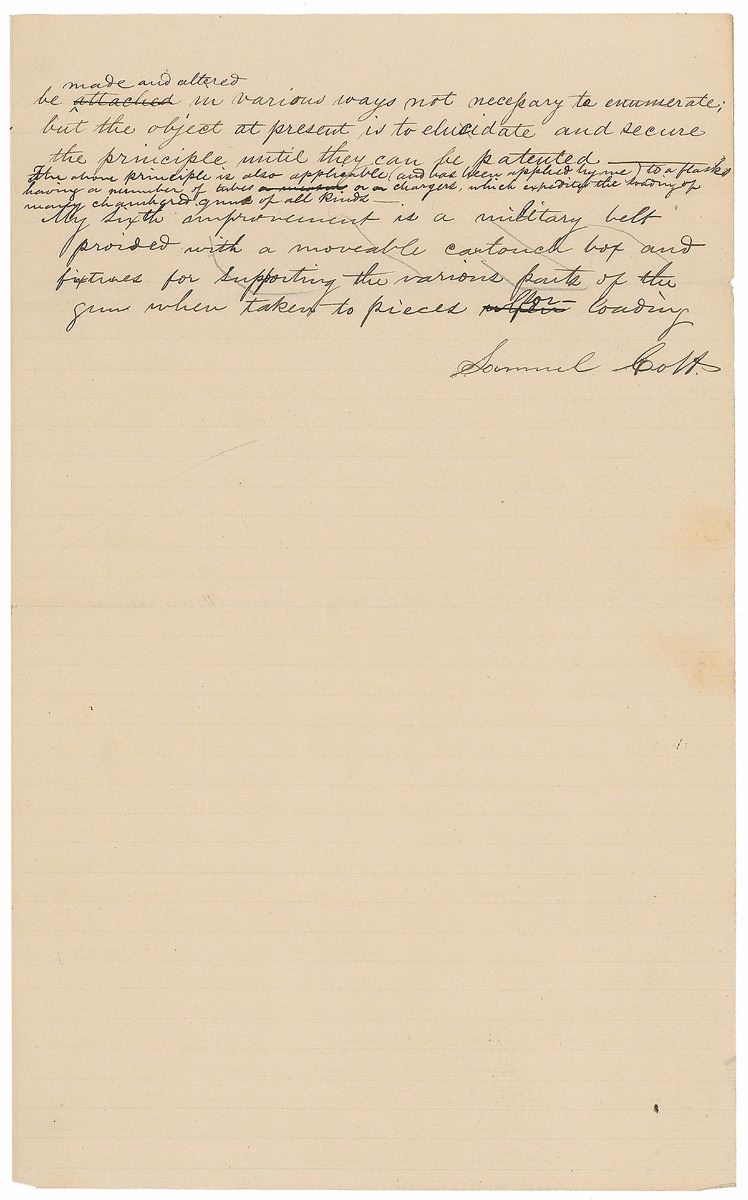 made and altered
be attached in various ways not necessary to enumerate;
but the object at present is to elucidate and secure
the principle until they can be patented
The above principle is also applicable (and has been applied by me) to a flask
having a number of tubes or chargers, which expedites the loading of
many chambered guns of all kinds —
My sixth improvement is a military belt
proided with a moveable cartouch box and
fixtures for supporting the various parts of the
gun when taken to pieces for loading
Samuel Colt.